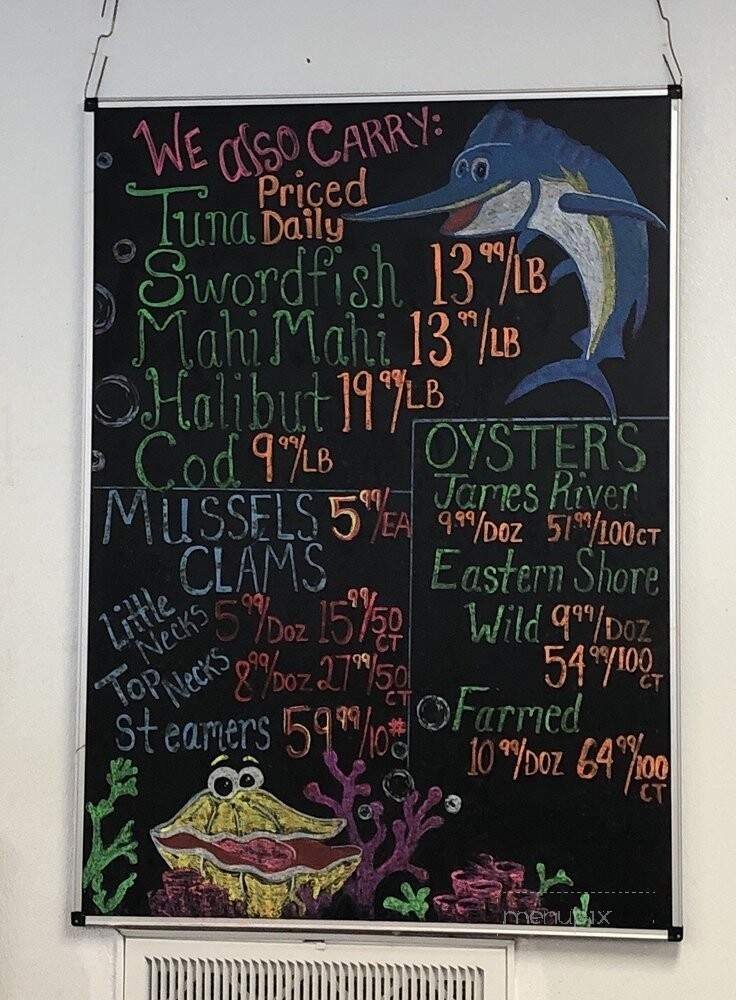 WE also CARRY:
Tuna Priced Daily
Swordfish 13.99/LB
Mahi Mahi 13.99/LB
Halibut 19.99/LB
Cod 9.99/LB
MUSSELS 5.99/EA
CLAMS
Little Necks 5.99/Doz 15.99/50 CT
Top Necks 8.99/Doz 27.99/50 CT
Steamers 59.99/10#
OYSTERS
James River
9.99/Doz 51.99/100CT
Eastern Shore
Wild 9.99/Doz
54.99/100 CT
Farmed
10.99/Doz 64.99/100 CT
menupix